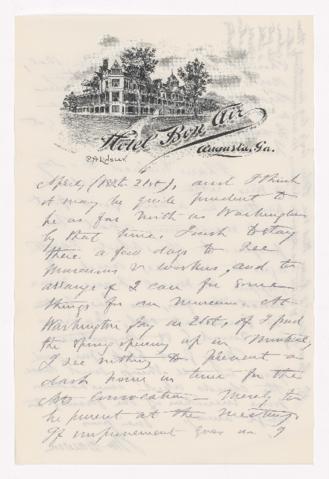 Hotel Bon Air
Augusta, Ga.
April, (18th 21st), and I think
it may be quite prudent to
be as far north as Washington
by that time. I wish to stay
there a few days to see
Museums & workers, and to
arrange if I can for some
things for our Museum. At
Washington say on 21st, if I find
the spring opening up in Montreal,
I see nothing to prevent a
dash home in time for the
Convocation — merely to
be present at the meeting.
If improvement goes on I